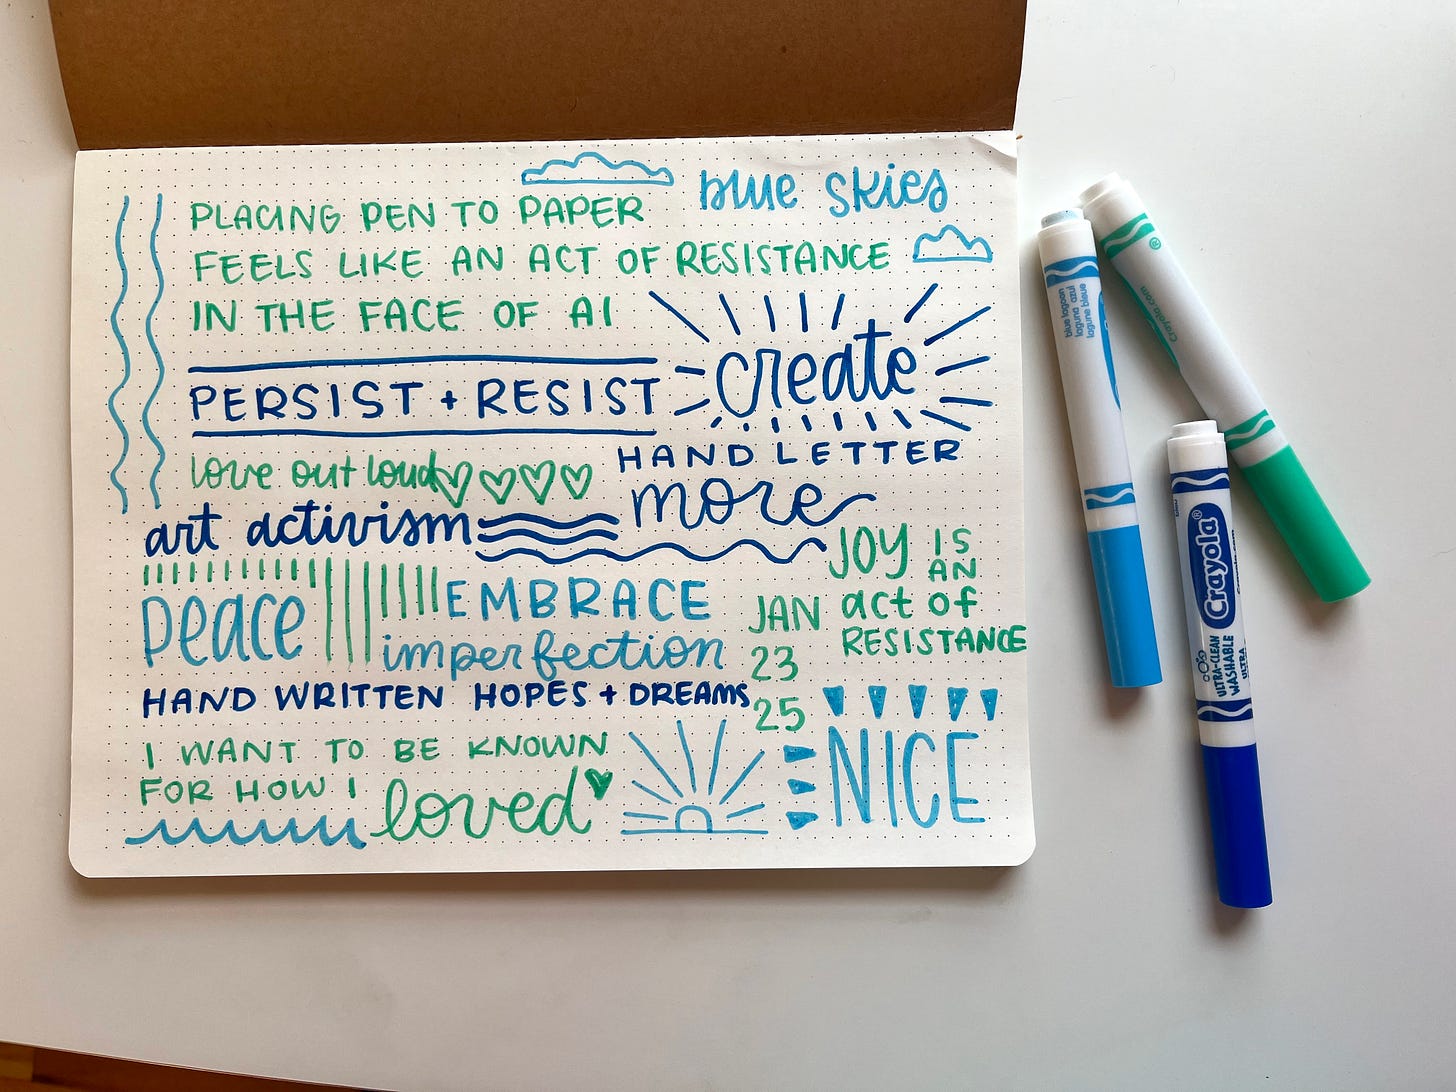 blue skies
PLACING PEN TO PAPER
FEELS LIKE AN ACT OF RESISTANCE
IN THE FACE OF AI
create
PERSIST + RESIST
HAND LETTER
more
love out loud
art activism
JOY IS
AN
act of
RESISTANCE
peace
EMBRACE
imperfection
JAN
23
25
HAND WRITTEN HOPES + DREAMS
NICE
I WANT TO BE KNOWN
FOR HOW I
loved
blue lagoon
laguna azul
lagune bleue
Crayola.com
Crayola®
ULTRA-CLEAN
WASHABLE
ULTRA